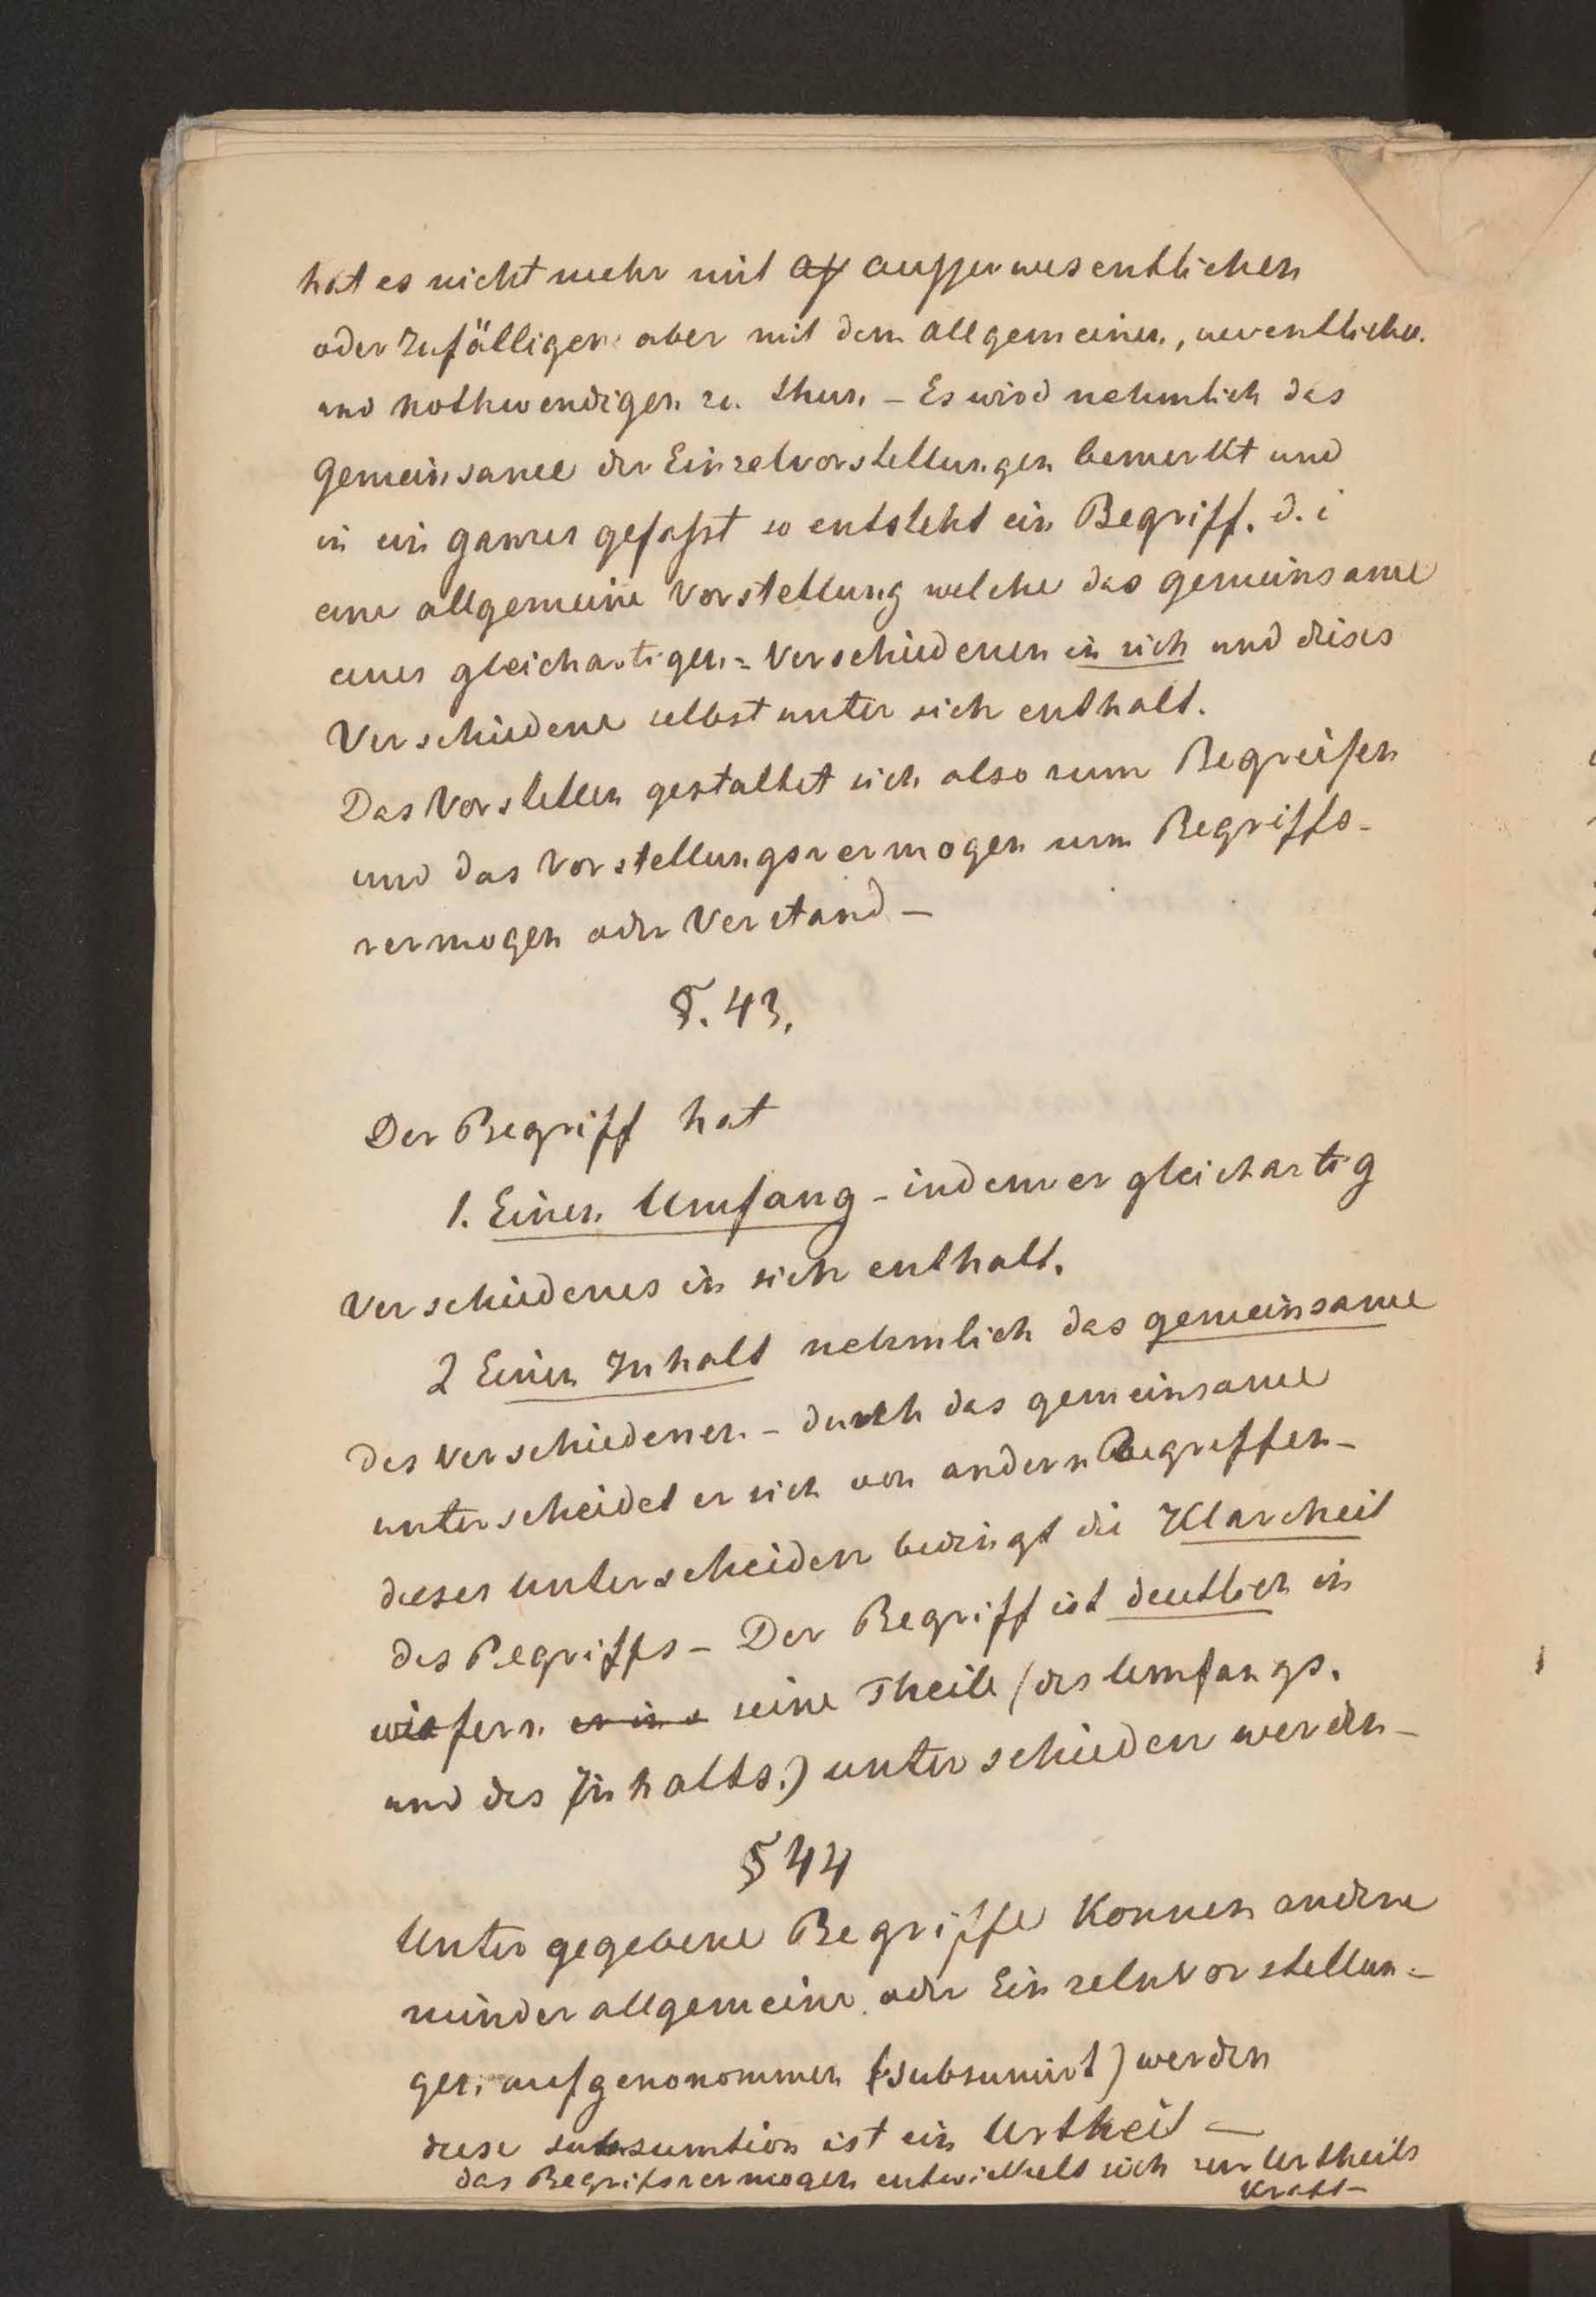 hat es nicht mehr mit ausserwesentlichen
oder zufälligen aber mit dem allgemeinen, wesentlichen
und nothwendigen zu thun – Es wird nehmlich das
Gemeinsame der Einzelvorstellungen bemerkt und
in ein ganzes gefasst so entsteht ein Begriff. d. i
eine allgemeine Vorstellung welche das gemeinsame
eines gleichartigen = Verschiedenen in sich und dises
Verschiedene selbst unter sich enthalt.
Das Vorstellen gestaltet sich also zum Begreifen
und das Vorstellungsvermogen zum Begriffs-
vermogen oder Verstand –
§. 43.
Der Begriff hat
1. Einen Umfang – indem er gleichartig
Verschiedenes in sich enthalt.
2 Einen Inhalt nehmlich das gemeinsame
des Verschiedenen. – durch das gemeinsame
unterscheidet er sich von andern Begriffen –
dieses Unterscheiden bedingt die Klarheit
des Begriffs – Der Begriff ist deutlich in
wiefern er in s seine Theile (des Umfangs.
und des Inhalts.) unterschieden werden –
§ 44
Unter gegebene Begriffe konnen andere
minder allgemeine oder Einzelnvorstellun=
gen aufgenonommen (subsumirt) werden
diese subsumtion ist ein Urtheil —
das Begrifsvermogen entwickelt sich zur Urtheils
Kraft –